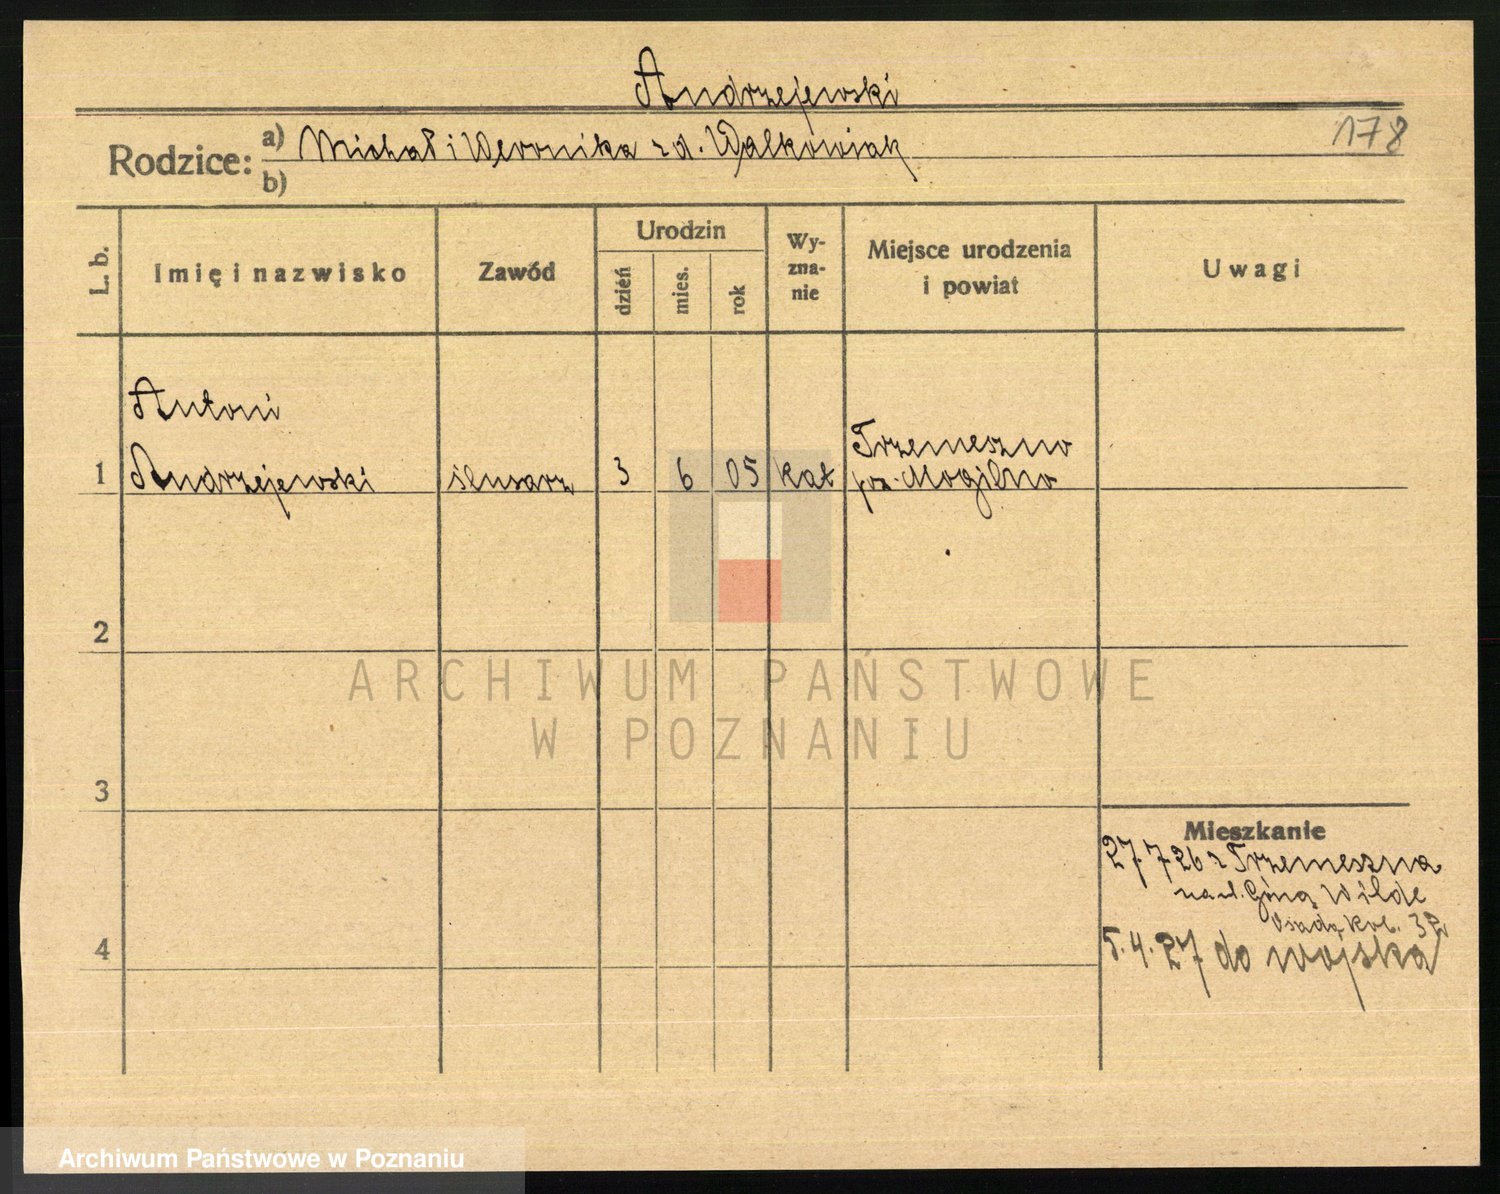 Andrzejewski
178
Rodzice: a) Michał i Weronika zd. Walkowiak
b)
L. b.
Imię i nazwisko
Zawód
Urodzin
dzień
mies.
rok
Wy-
zna-
nie
Miejsce urodzenia
i powiat
Uwagi
Antoni
Trzemeszno
1 Andrzejewski ślusarz 3 6 05 kat pow. Mogilno
2
3
4
Mieszkanie
27 7 26 z Trzemeszna
Górna Wilde
32
5.4.27 do wojska
ARCHIWUM PAŃSTWOWE
W POZNANIU
Archiwum Państwowe w Poznaniu